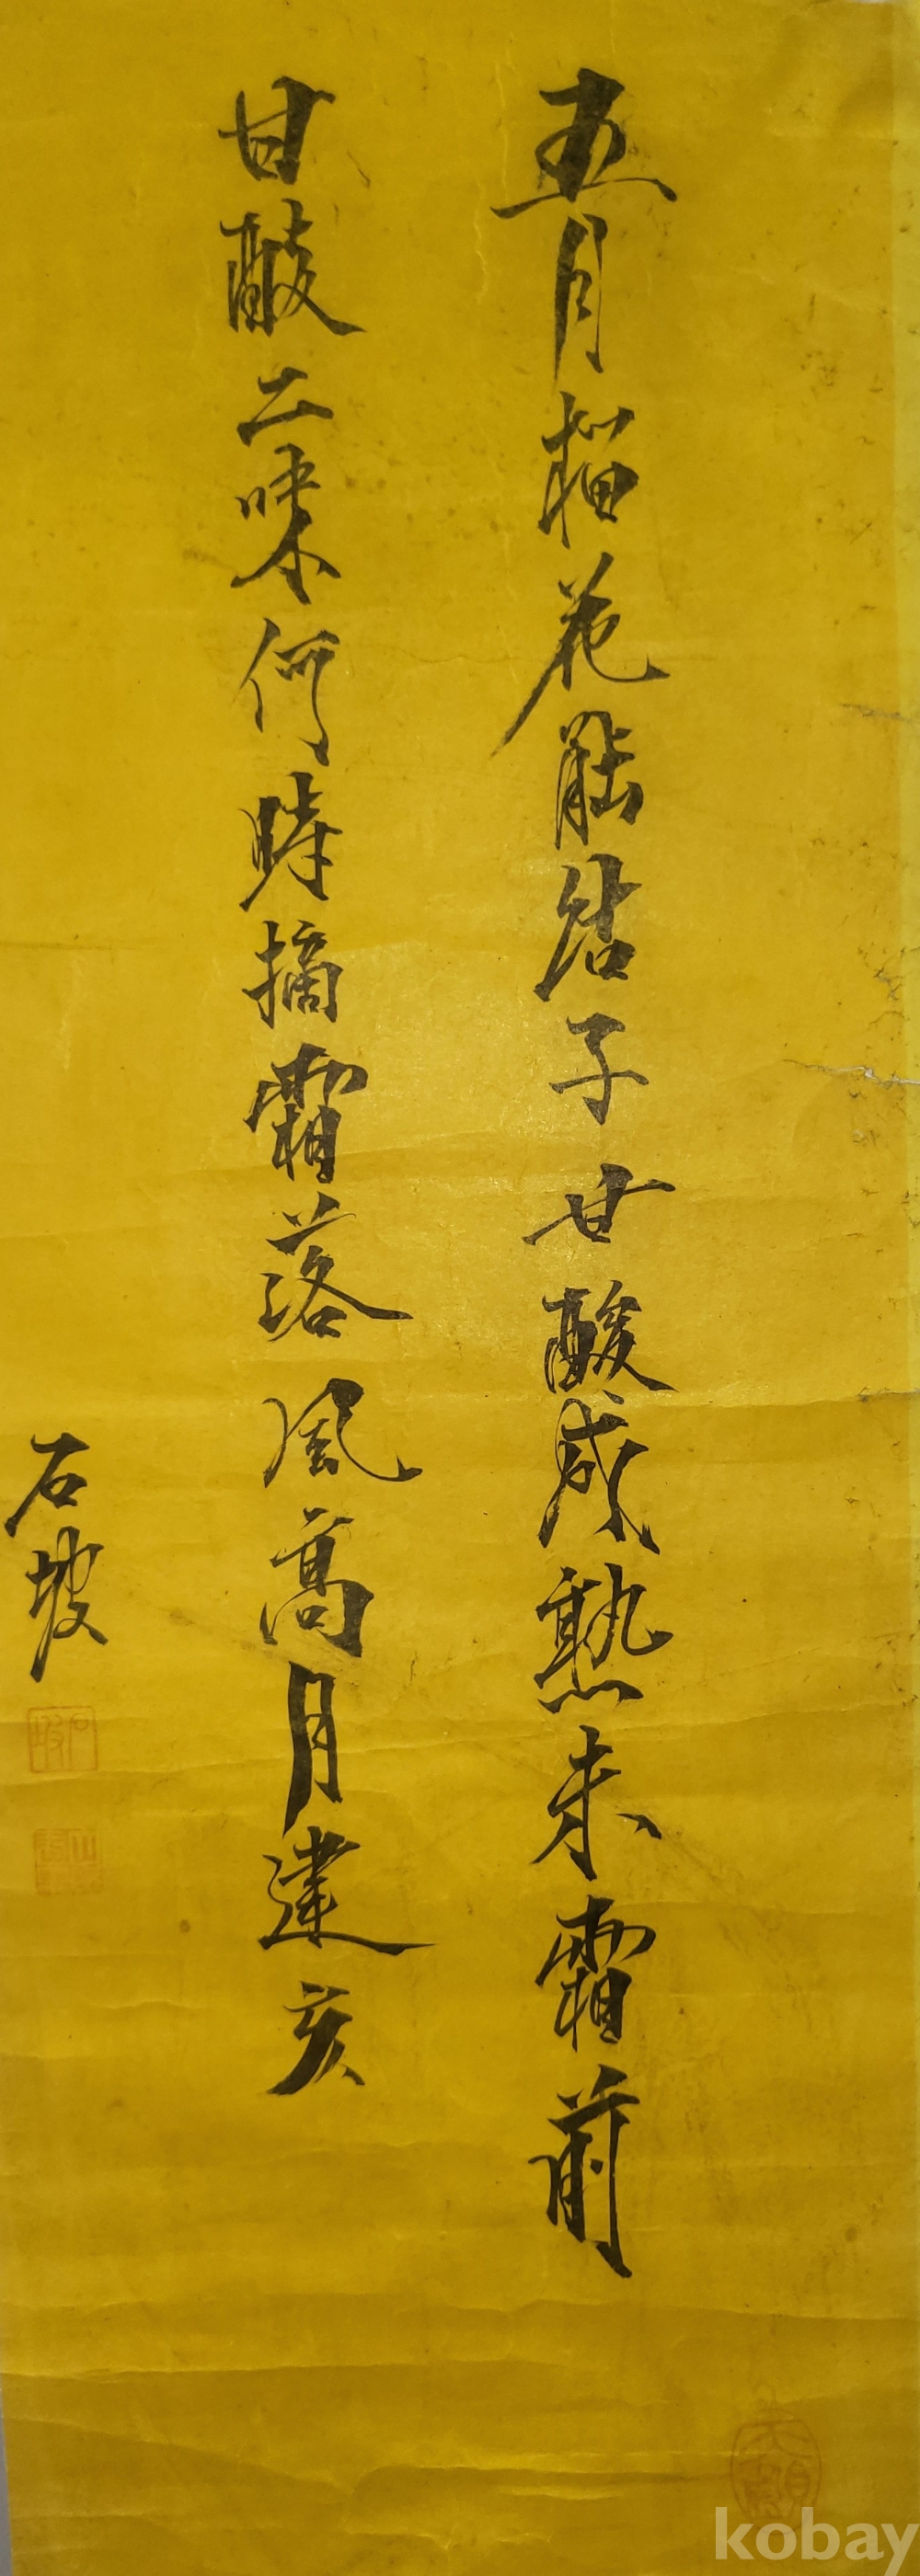 五月榴花能結子甘酸成熟未霜前
甘酸二味何時摘霜落風高月建亥
石坡
kobay